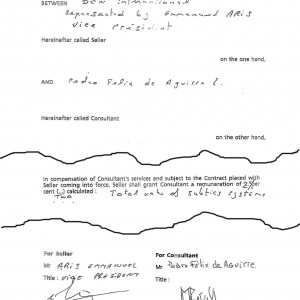 BETWEEN DCN international
represented by Emmanuel ARIS
Vice Président
Hereinafter called Seller
on the one hand,
AND Pedro Felix de Aguirre L.
Hereinafter called Consultant
on the other hand,
In compensation of Consultant's services and subject to the Contract placed with
Seller coming into force, Seller shall grant Consultant a remuneration of 2% per
cent (...) calculated : Total value of subtics systems
Two
For Seller
Mr ARIS EMMANUEL
Title : VICE PRESIDENT
For Consultant
Mr Pedro Felix de AGUIRRE.
Title :